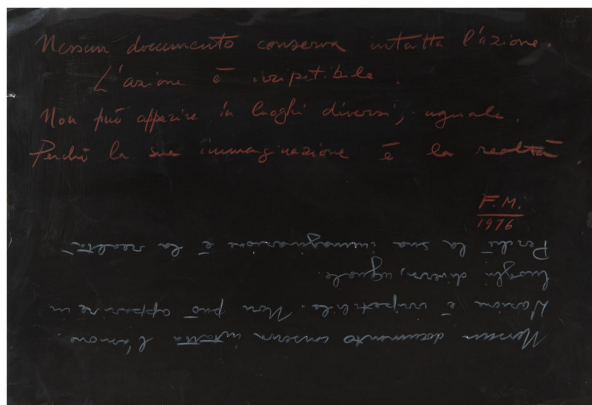 Nessun documento conserva intatta l'azione.
L'azione è iripetibile.
Non può apparire in luoghi diversi, uguale.
Perché la sua immaginazione è la realtà
F.M.
1976
Nessun documento conserva intatta l'azione.
L'azione è iripetibile. Non può apparire in
luoghi diversi, uguale.
Perché la sua immaginazione è la realtà